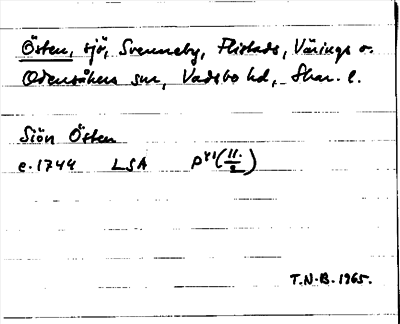 Östen, sjö, Svenneby, Flistads, Värings o.
Odensåkers snr, Vadsbo hd, Skar. l.
Sjön Östen
c. 1744 LSA P41 (11./2)
T.N.B. 1965.